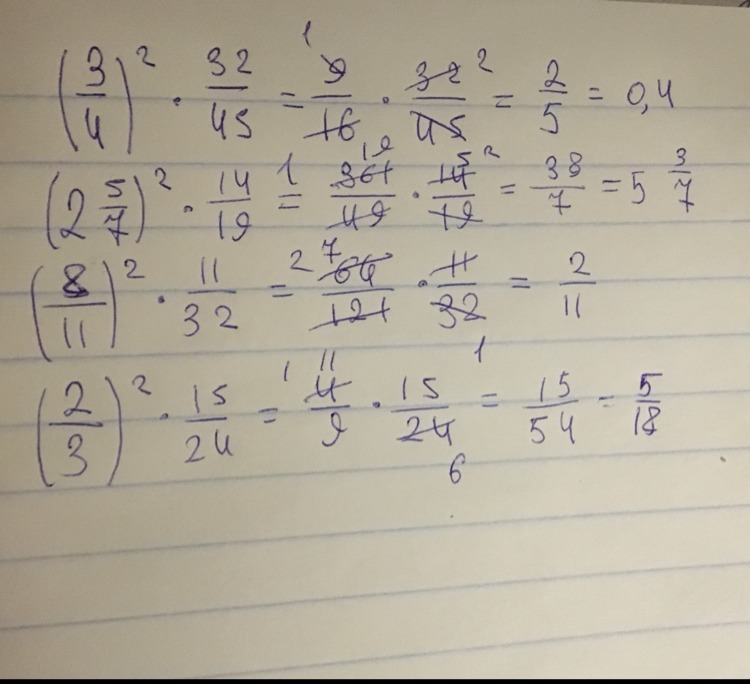 (3/4)² · 32/45 = 9/16 · 32/45 = 2/5 = 0,4
(2 5/7)² · 14/19 = 361/49 · 14/19 = 38/7 = 5 3/7
(8/11)² · 11/32 = 64/121 · 11/32 = 2/11
(2/3)² · 15/24 = 4/9 · 15/24 = 15/54 = 5/18